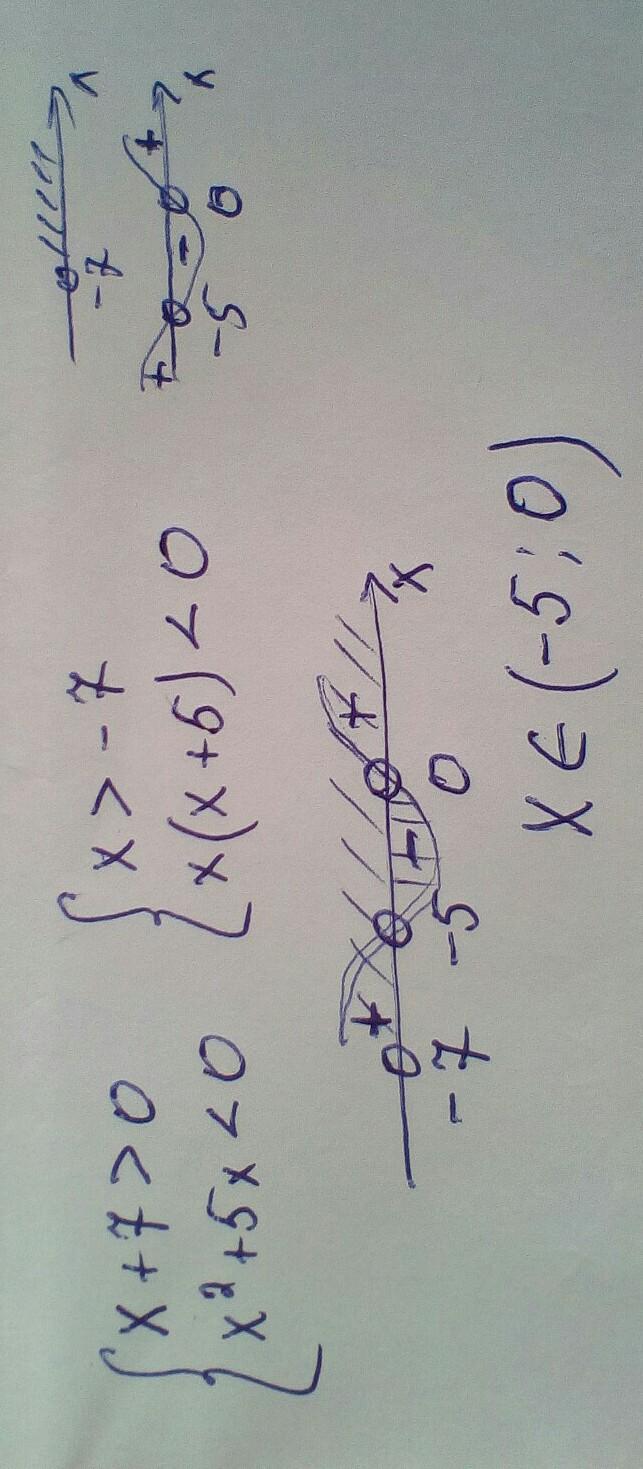 { x + 7 > 0
x² + 5x < 0
{ x > - 7
x(x + 5) < 0
-7 x
+ - +
-5 0 x
+ - +
-7 -5 0 x
x ∈ (-5; 0)